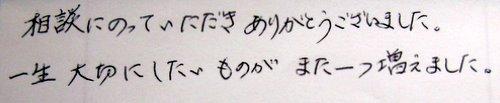 相談にのっていただき ありがとうございました。
一生 大切にしたい ものが また一つ増えました。